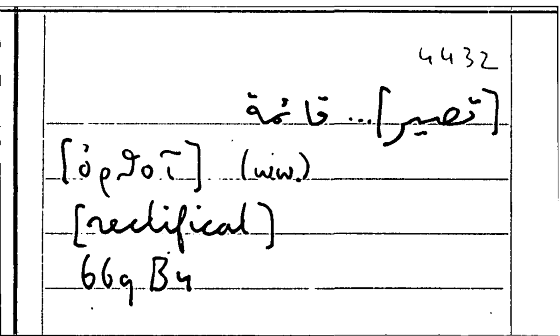 4432
[تصير]... قائمة
[ὀρθοῖ]
[rectificat]
669 B4